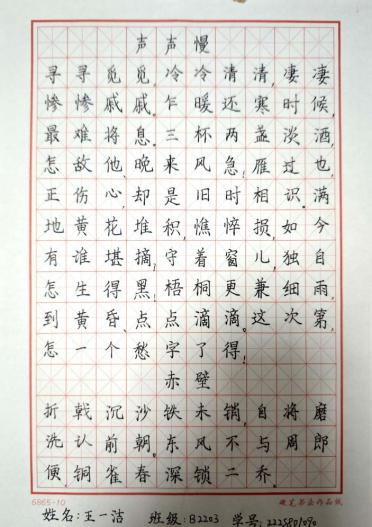 声声慢
寻寻觅觅,冷冷清清,凄凄
惨惨戚戚。乍暖还寒时候,
最难将息。三杯两盏淡酒,
怎敌他、晚来风急!雁过也,
正伤心,却是旧时相识。满
地黄花堆积,憔悴损,如今
有谁堪摘,守着窗儿,独自
怎生得黑!梧桐更兼细雨,
到黄昏、点点滴滴。这次第,
怎一个愁字了得!
赤壁
折戟沉沙铁未销,自将磨
洗认前朝。东风不与周郎
便,铜雀春深锁二乔。
6865-10 硬笔书法作品纸
姓名:王一洁 班级:B2203 学号: